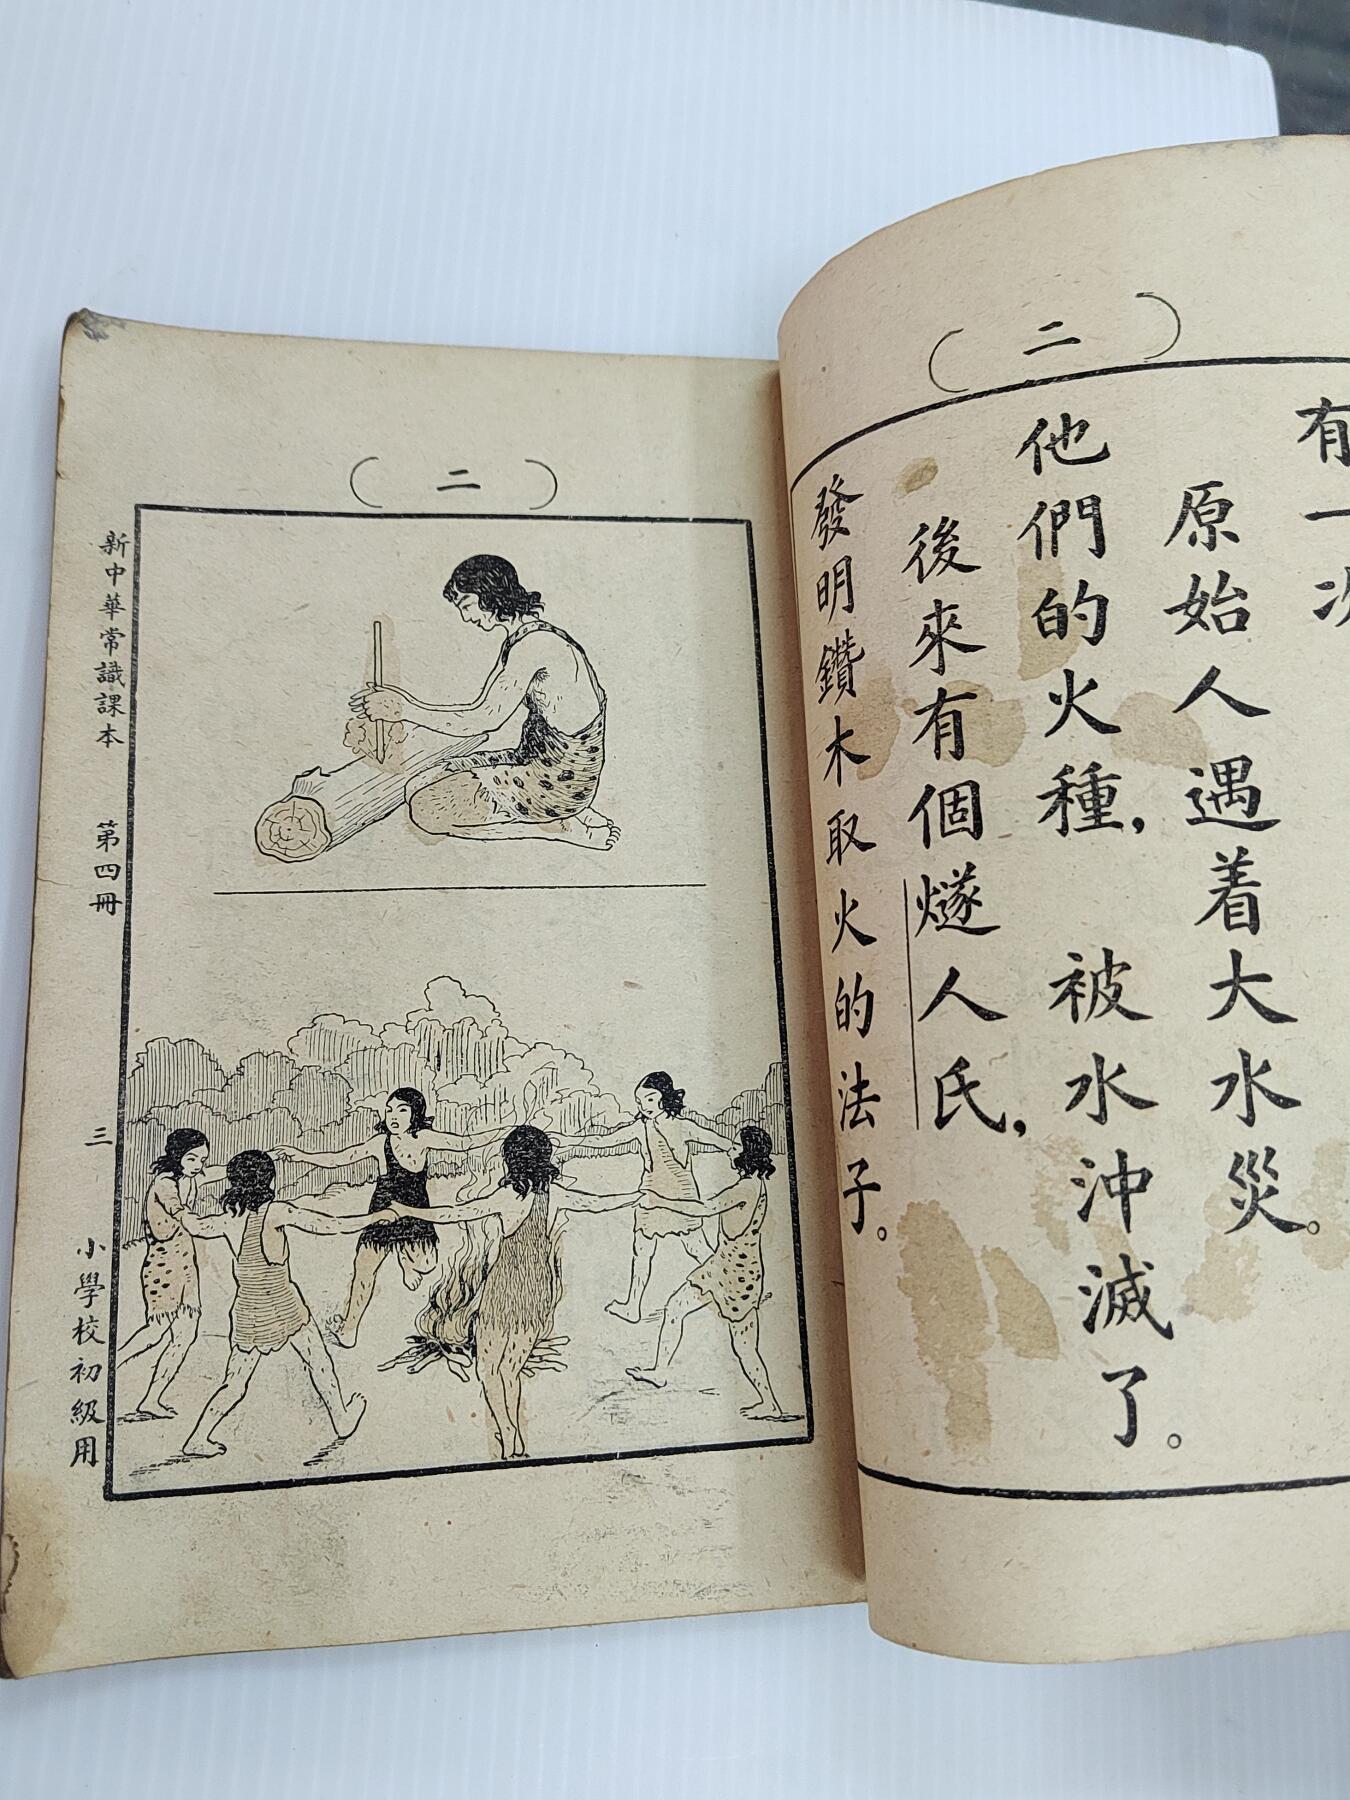 （二）
有一次
原始人遇着大水災。
他們的火種，　被水沖滅了。
後來有個燧人氏，
發明鑽木取火的法子。
（二）
新中華常識課本　第四冊　三　小學校初級用